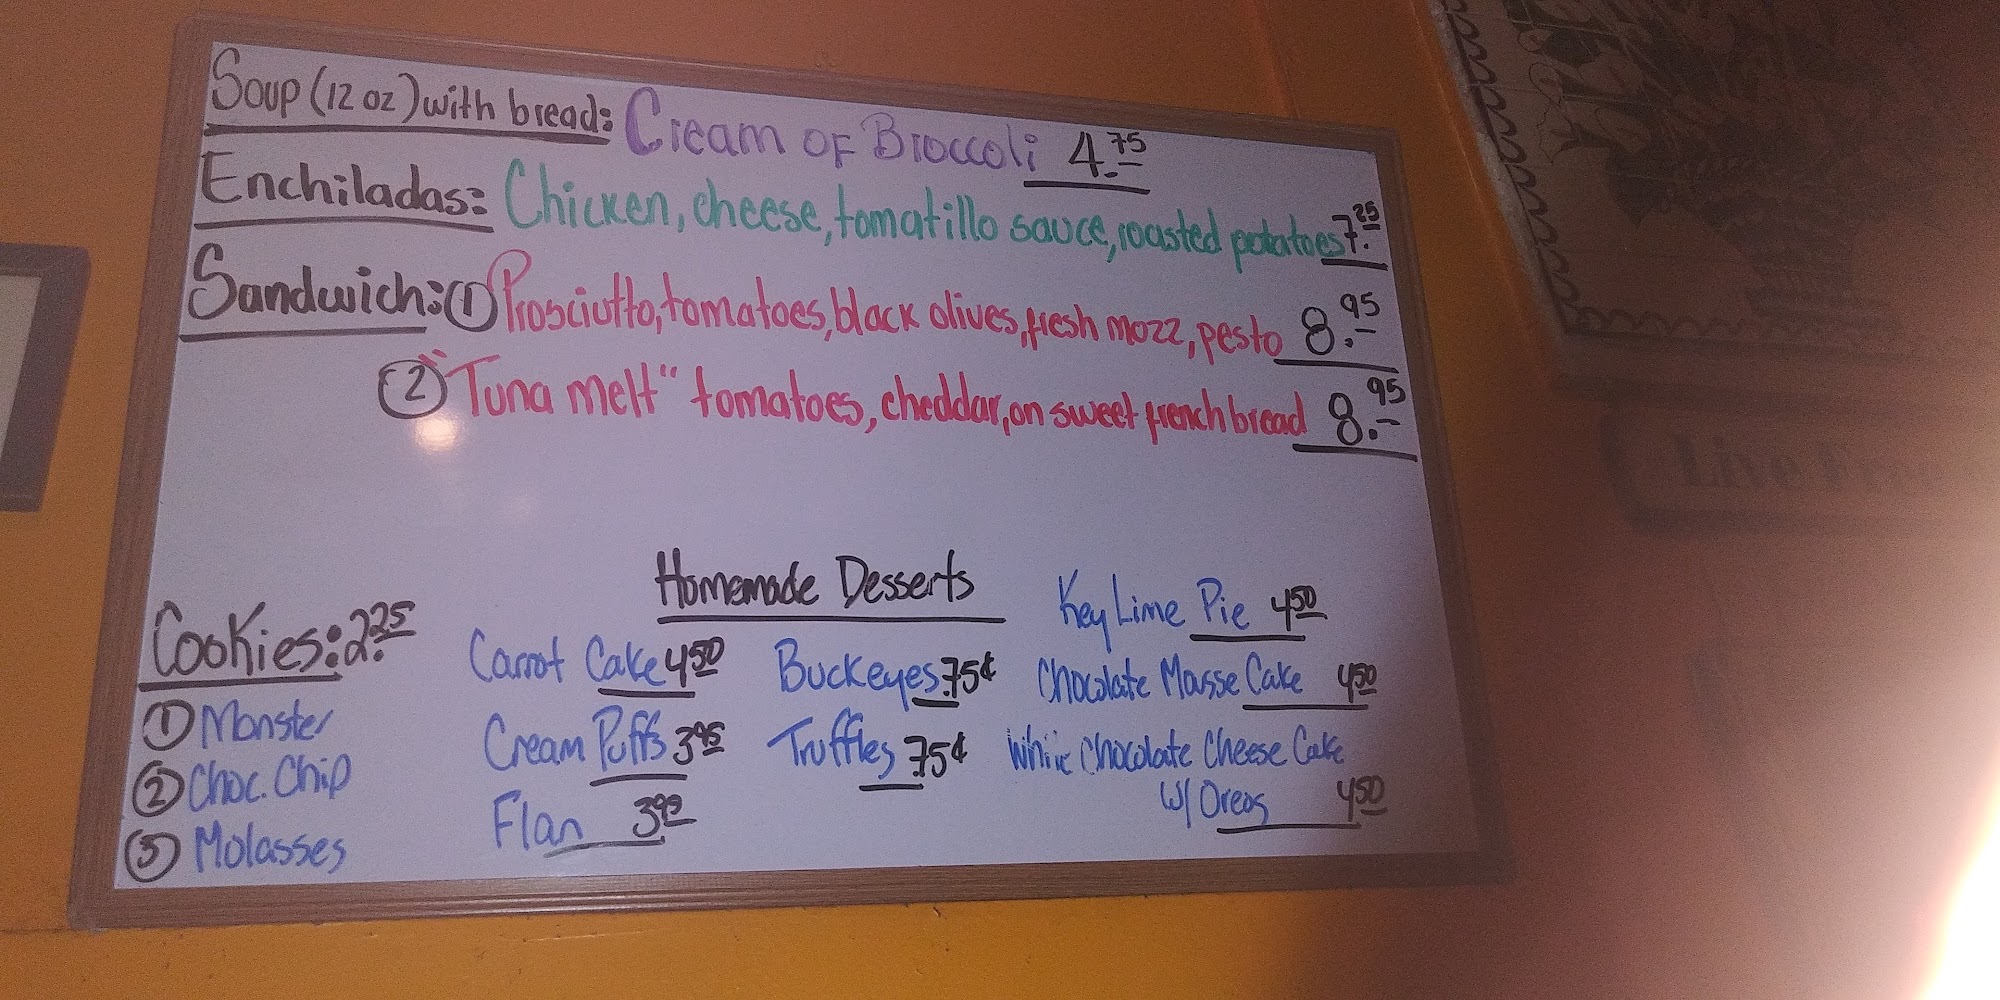 Soup (12 oz) with bread: Cream of Broccoli 4.75
Enchiladas: Chicken, cheese, tomatillo sauce, roasted potatoes 7.25
Sandwich: ① Prosciutto, tomatoes, black olives, fresh mozz, pesto 8.95
② "Tuna melt" tomatoes, cheddar, on sweet french bread 8.95
Homemade Desserts
Cookies: 2.25
① Monster
② Choc. Chip
③ Molasses
Carrot Cake 4.50
Cream Puffs 3.95
Flan 3.95
Buckeyes .75¢
Truffles .75¢
Key Lime Pie 4.50
Chocolate Mousse Cake 4.50
White Chocolate Cheese Cake
w/ Oreos 4.50